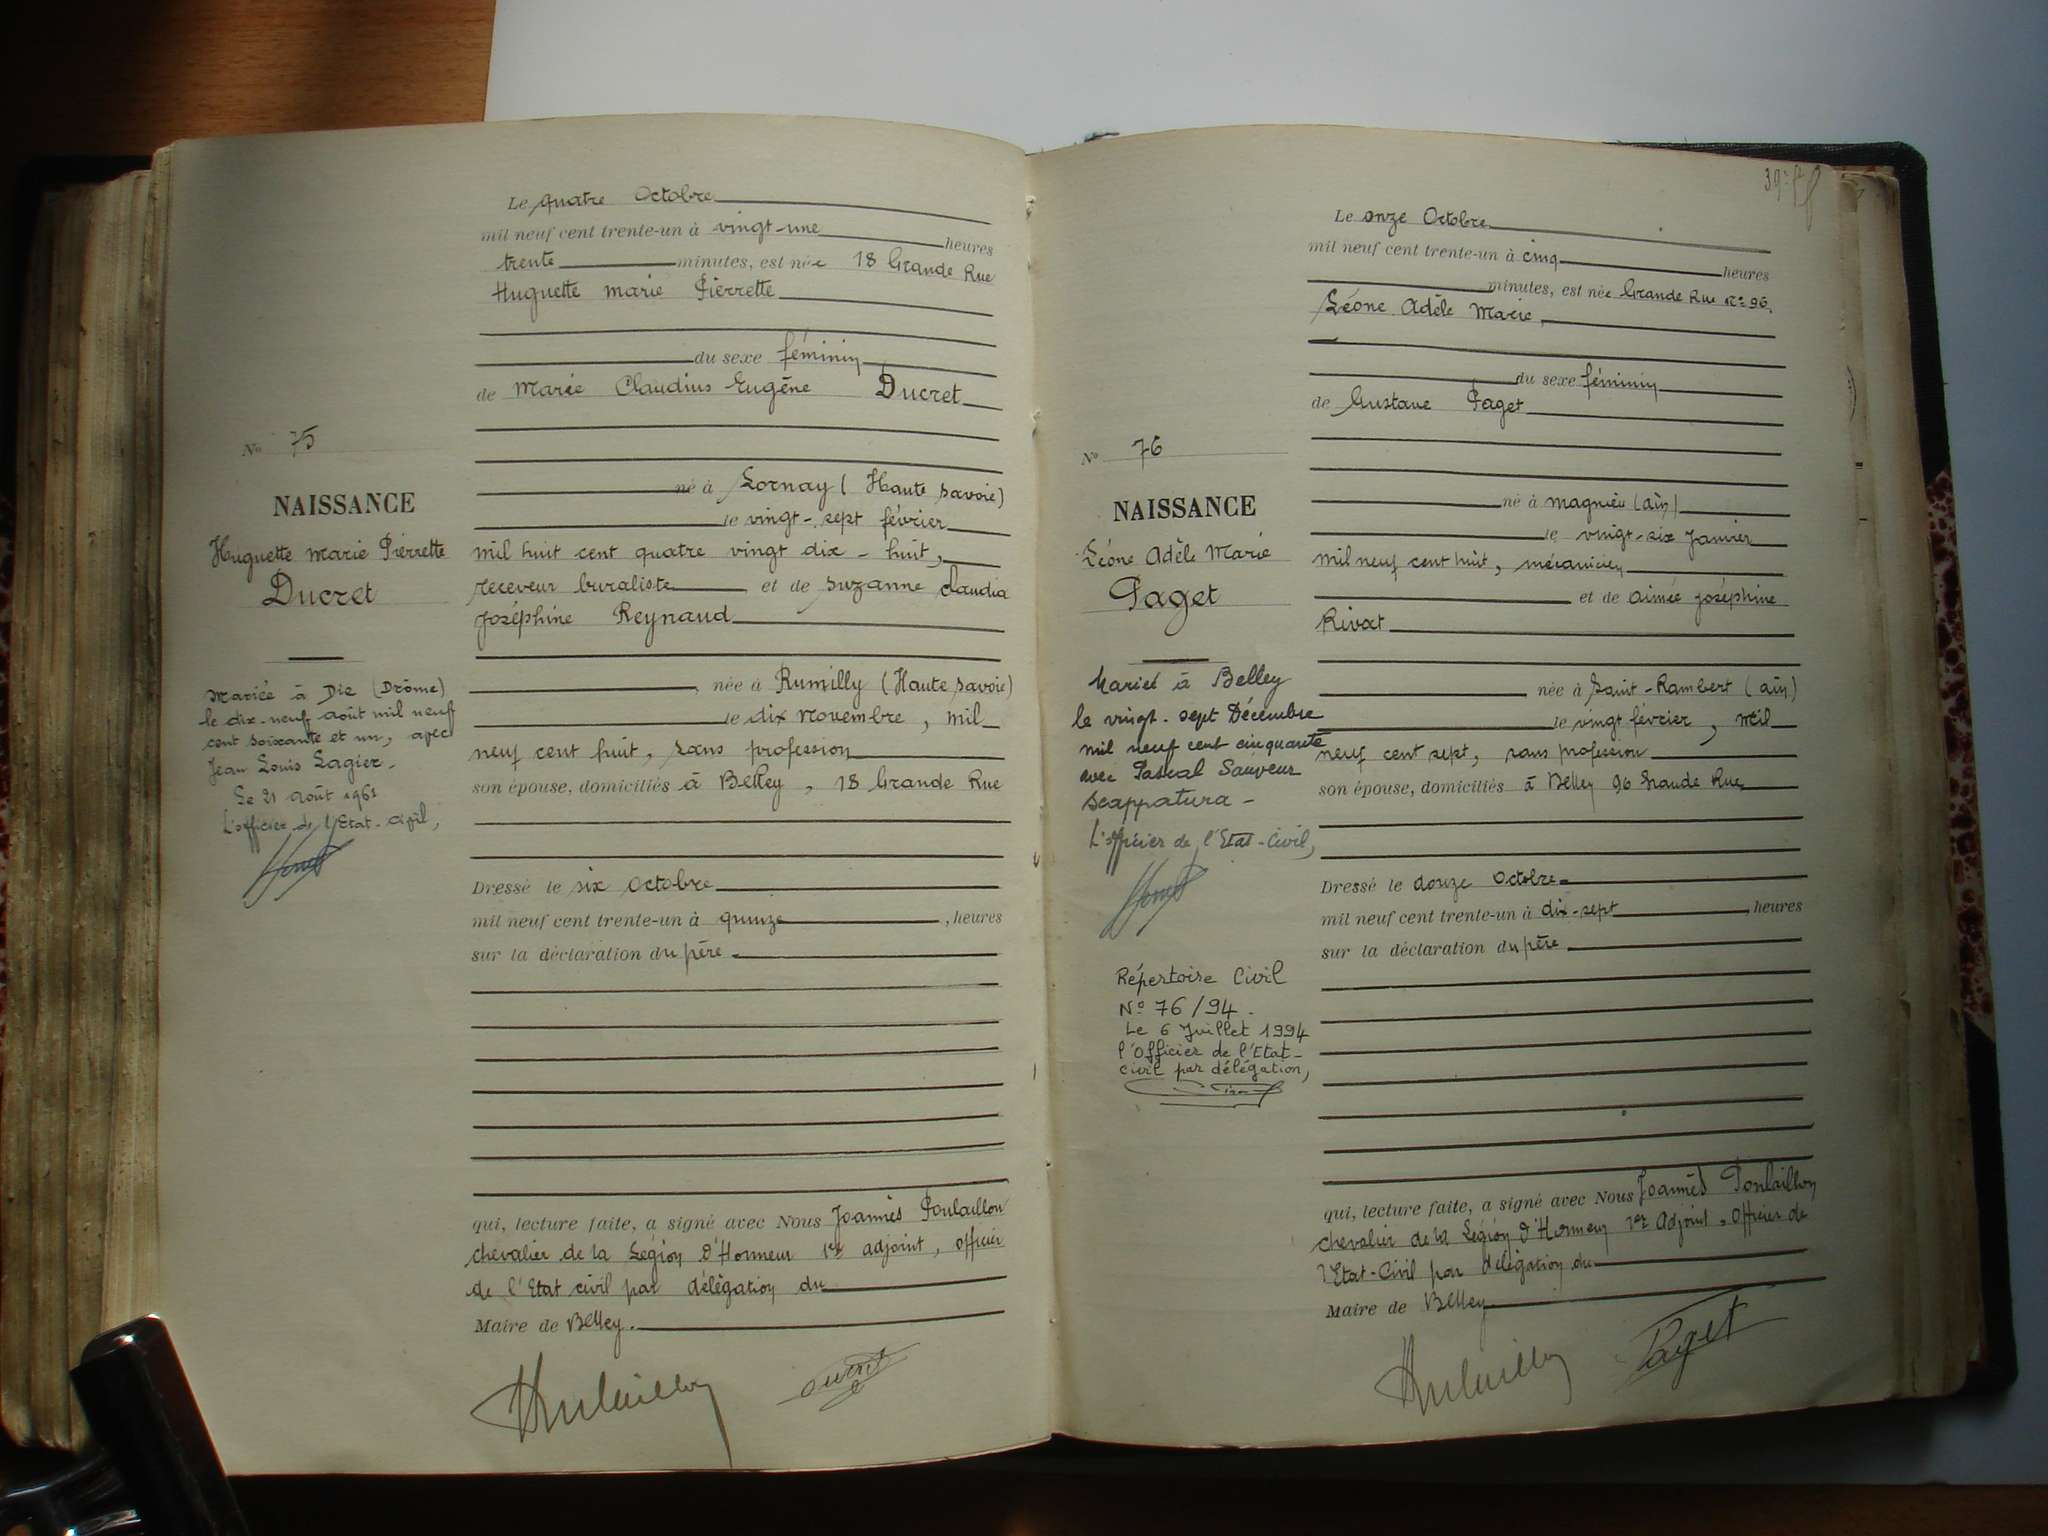 Le quatre Octobre
mil neuf cent trente-un à vingt-une heures
trente minutes, est née 18 Grande Rue
Huguette Marie Pierrette
du sexe féminin
de Marie Claudius Eugène Ducret
né à Lornay (Haute Savoie)
le vingt-sept février
mil huit cent quatre vingt dix-huit,
receveur buraliste et de Suzanne Claudia
Joséphine Reynaud
, née à Rumilly (Haute Savoie)
le dix novembre, mil
neuf cent huit, sans profession
son épouse, domiciliés à Belley, 18 Grande Rue
Dressé le six Octobre
mil neuf cent trente-un à quinze, heures
sur la déclaration du père
qui, lecture faite, a signé avec Nous Joannès Poulaillon
chevalier de la Légion d'Honneur 1er adjoint, officier
de l'Etat civil par délégation du
Maire de Belley.
No 75
NAISSANCE
Huguette Marie Pierrette
Ducret
Mariée à Die (Drôme)
le dix-neuf août mil neuf
cent soixante et un, avec
Jean Louis Lagier -
Le 21 Août 1961
L'officier de l'Etat-civil,
Ducret
39
Le onze Octobre
mil neuf cent trente-un à cinq heures
minutes, est née Grande Rue No 96.
Léone Adèle Marie,
du sexe féminin
de Gustave Paget
né à Magnieu (Ain)
le vingt-six Janvier
mil neuf cent huit, mécanicien
et de Aimée Joséphine
Rivat
née à Saint-Rambert (Ain)
le vingt février, mil
neuf cent sept, sans profession
son épouse, domiciliés à Belley 96 Grande Rue
Dressé le douze Octobre
mil neuf cent trente-un à dix-sept, heures
sur la déclaration du père
qui, lecture faite, a signé avec Nous Joannès Poulaillon
chevalier de la Légion d'Honneur 1er Adjoint, Officier de
l'Etat-Civil par délégation du
Maire de Belley
No 76
NAISSANCE
Léone Adèle Marie
Paget
Mariée à Belley
le vingt-sept Décembre
mil neuf cent cinquante
avec Pascal Sauveur
Scappatura -
L'officier de l'Etat-Civil,
Répertoire Civil
No 76/94.
Le 6 Juillet 1994
l'Officier de l'Etat-
civil par délégation,
Paget